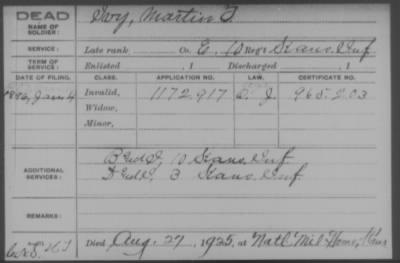 DEAD
NAME OF SOLDIER: Ivy, Martin F.
SERVICE: Late rank Co. E, 10 Reg't Kans. Inf
TERM OF SERVICE: Enlisted , 1 Discharged , 1
DATE OF FILING. CLASS. APPLICATION NO. LAW. CERTIFICATE NO.
1896, Jan 4 Invalid, 1172.917 C. J. 965203
Widow,
Minor,
ADDITIONAL SERVICES:
B 10 Kans. Inf
D 3 Kans. Inf.
REMARKS:
Died Aug. 27, 1925, at Natl Mil Home, Kans